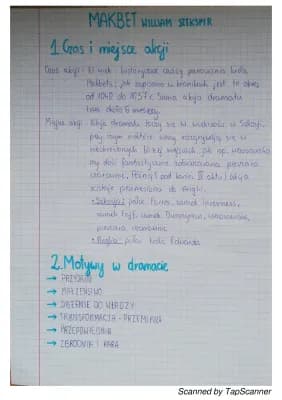 MAKBET WILLIAM SZEKSPIR
1. Czas i miejsce akcji
Czas akcji - XI wiek - historyczne czasy panowania króla
Makbeta, jak zapisano w kronikach jest to okres
od 1040 do 1057 r. Sama akcja dramatu
trwa około 6 miesięcy.
Miejsce akcji - Akcja dramatu toczy się w Szkocji,
przy czym niektóre sceny rozgrywają się w
nieokreślonych bliżej miejscach, jak np. wrzosowisko
czy dość fantastycznie
czarownic. Później pod koniec akcja
zostaje przeniesiona do Anglii.
• Szkocja: pałac Forres, zamek Inverness,
zamek Fajf, zamek Dunzynan, wrzosowisko,
pieczara czarownic
• Anglia: pałac króla Edwarda
2. Motywy w dramacie
→ PRZYRODY
→ MAŁŻEŃSTWO
→ DĄŻENIE DO WŁADZY
→ TRANSFORMACJA - PRZEMIANA
→ PRZEPOWIEDNIA
→ ZBRODNIA I KARA
Scanned by TapScanner